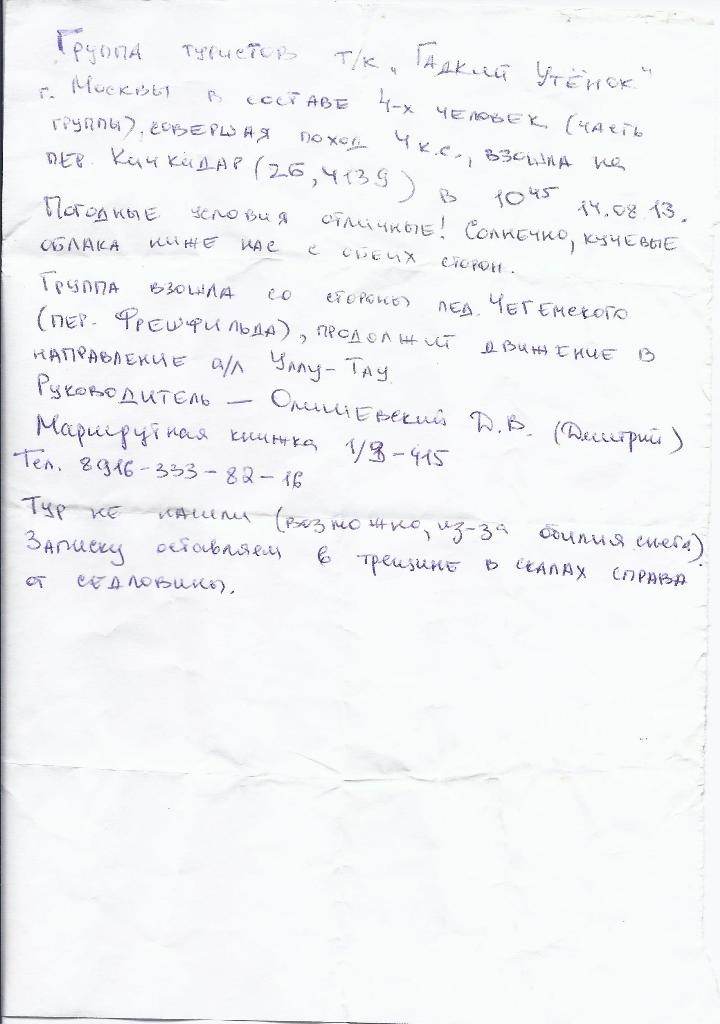 Группа туристов т/к "Гадкий Утёнок"
г. Москвы в составе 4-х человек (часть
группы), совершая поход 4 к.с., взошла на
пер. Кичкидар (2Б, 4139) в 10⁴⁵ 14.08.13.
Погодные условия отличные! Солнечно, кучевые
облака ниже нас с обеих сторон.
Группа взошла со стороны лед. Чегемского
(пер. Фрешфильда), продолжит движение в
направление а/л Уллу-Тау
Руководитель — Олишевский Д.В. (Дмитрий)
Маршрутная книжка 1/3-415
Тел. 8916-333-82-16
Тур не нашли (возможно, из-за обилия снега)
Записку оставляем в трещине в скалах справа
от седловины.